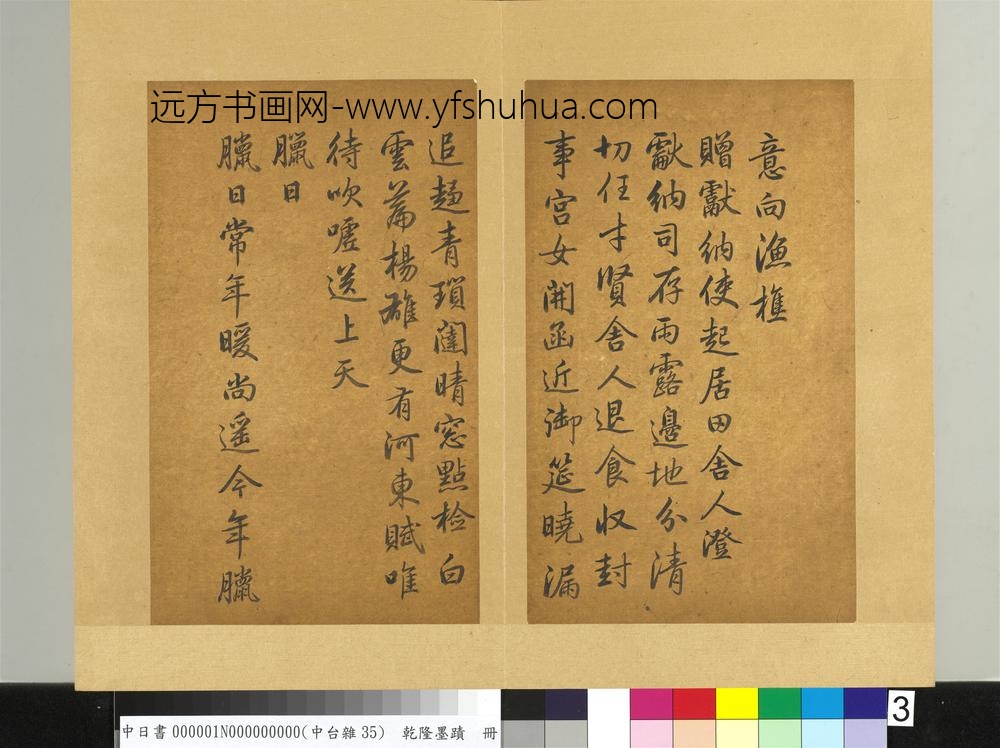 远方书画网-www.yfshuhua.com
意向漁樵
贈獻納使起居田舍人澄
獻納司存雨露邊地分清
切任才賢舍人退食收封
事宮女開函近御筵曉漏
追趨青瑣闥晴窓點檢白
雲篇楊雄更有河東賦唯
待吹噓送上天
臘日
臘日常年暖尚遥今年臘
中日書000001N000000000(中台雜35) 乾隆墨蹟 冊
3